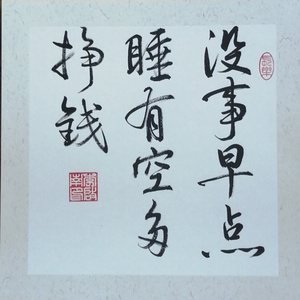 没事早点
睡有空多
挣钱